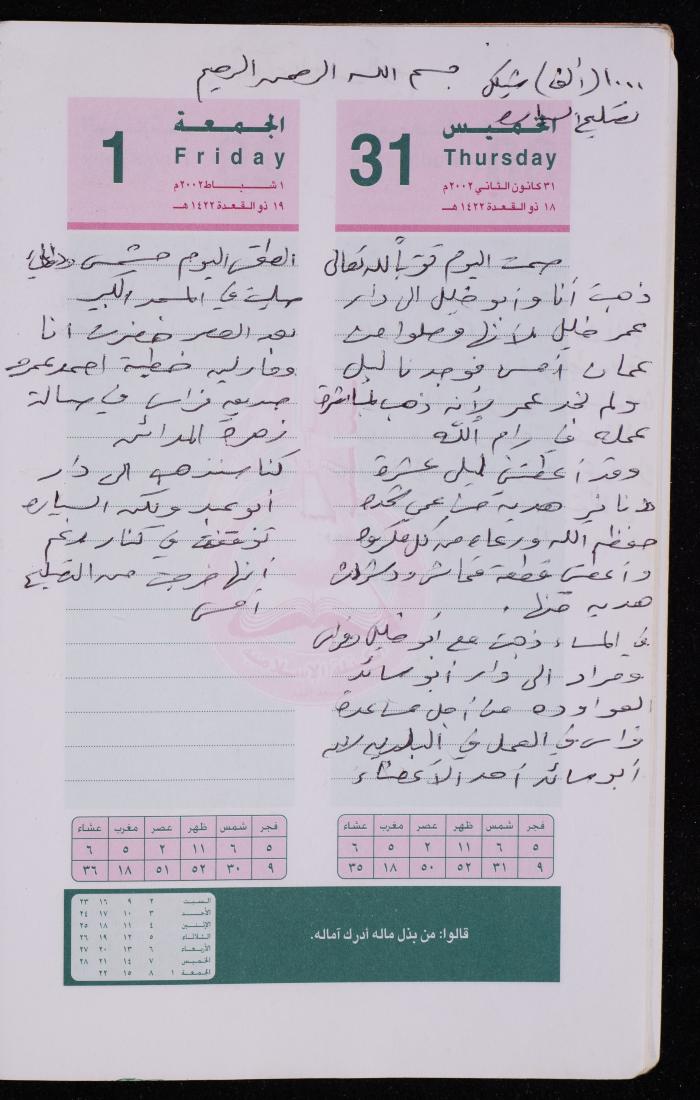 بسم الله الرحمن الرحيم
١٠٠٠ (ألف) شيكل
تصليح السيارة
الخميس
31
Thursday
٣١ كانون الثاني ٢٠٠٢م
١٨ ذو القعدة ١٤٢٢ هـ
صمت اليوم قرباً لله تعالى
ذهبت أنا وأبو خليل الى دار
عمر خليل لأنها وصلوا من
عمان أمس فوجدنا ليلى
ولم نجد عمر لأنه ذهب لمباشرة
عمله في رام الله
وقد أعطتني ليلى عشرة
دنانير هدية من عمي
حفظهم الله ورعاه من كل مكروه
وأعطتني قطعة قماش
هدية منها.
في المساء ذهبت مع أبو خليل وفراس
ومراد الى دار أبو سائد
العواوده من أجل مساعدة
فراس في العمل في البلدية لأن
أبو سائد أحد الأعضاء
الجمعة
1
Friday
١ شباط ٢٠٠٢م
١٩ ذو القعدة ١٤٢٢ هـ
الطقس اليوم مشمس
صليت في المسجد الكبير
بعد العصر حضرت أنا
خطبة احمد عمرو
صديق فراس في صالة
زهرة المدائن
كنا سنذهب الى دار
أبو عبد ولكن السيارة
توقفت في كنار رغم
أنها خرجت من التصليح
أمس
فجر شمس ظهر عصر مغرب عشاء
٥ ٦ ١١ ٢ ٥ ٦
٩ ٣١ ٥٢ ٥٠ ١٨ ٣٥
فجر شمس ظهر عصر مغرب عشاء
٥ ٦ ١١ ٢ ٥ ٦
٩ ٣٠ ٥٢ ٥١ ١٨ ٣٦
قالوا: من بذل ماله أدرك آماله.
السبت ٢ ٩ ١٦ ٢٣
الأحد ٣ ١٠ ١٧ ٢٤
الإثنين ٤ ١١ ١٨ ٢٥
الثلاثاء ٥ ١٢ ١٩ ٢٦
الأربعاء ٦ ١٣ ٢٠ ٢٧
الخميس ٧ ١٤ ٢١ ٢٨
الجمعة ١ ٨ ١٥ ٢٢